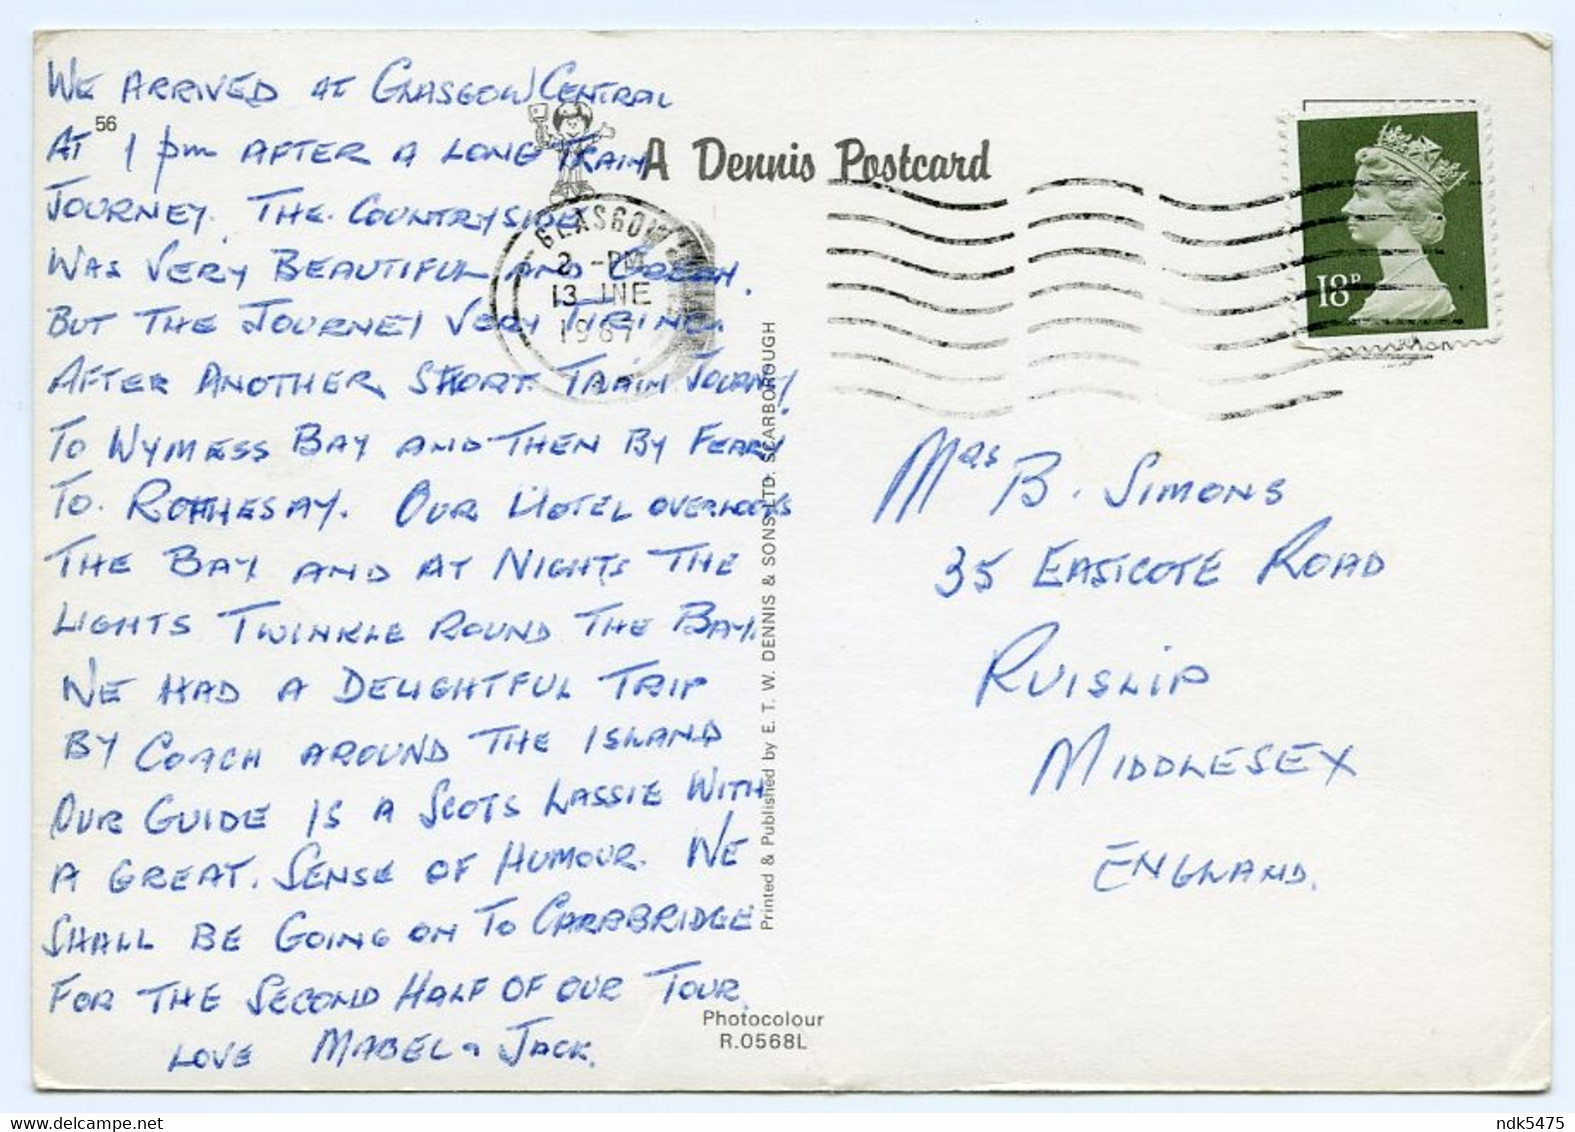 WE ARRIVED AT GLASGOW CENTRAL
AT 1 pm AFTER A LONG TRAIN
JOURNEY. THE COUNTRYSIDE
WAS VERY BEAUTIFUL AND GREEN.
BUT THE JOURNEY VERY TIRING.
AFTER ANOTHER SHORT TRAIN JOURNEY
TO WYMESS BAY AND THEN BY FERRY
TO. ROTHESAY. OUR HOTEL OVERLOOKS
THE BAY AND AT NIGHTS THE
LIGHTS TWINKLE ROUND THE BAY.
WE HAD A DELIGHTFUL TRIP
BY COACH AROUND THE ISLAND
OUR GUIDE IS A SCOTS LASSIE WITH
A GREAT. SENSE OF HUMOUR. WE
SHALL BE GOING ON TO CARRBRIDGE
FOR THE SECOND HALF OF OUR TOUR.
LOVE MABEL & JACK.
56
A Dennis Postcard
GLASGOW
2 - PM
13 JNE
1987
18P
Printed & Published by E. T. W. DENNIS & SONS LTD. SCARBOROUGH
MRS B. SIMONS
35 EASTCOTE ROAD
RUISLIP
MIDDLESEX
ENGLAND.
Photocolour
R.0568L
delcampe.net
ndk5475